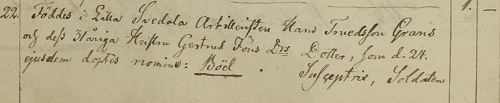 22. Föddes i Lilla Svedala Artilleristen Hans Truedsson Grans 1.
och dess 31 åriga Hustru Gertrud Jöns Drs Dotter, som d. 24.
ejusdem döptes nomine: Böel. Susceptris, Soldaten